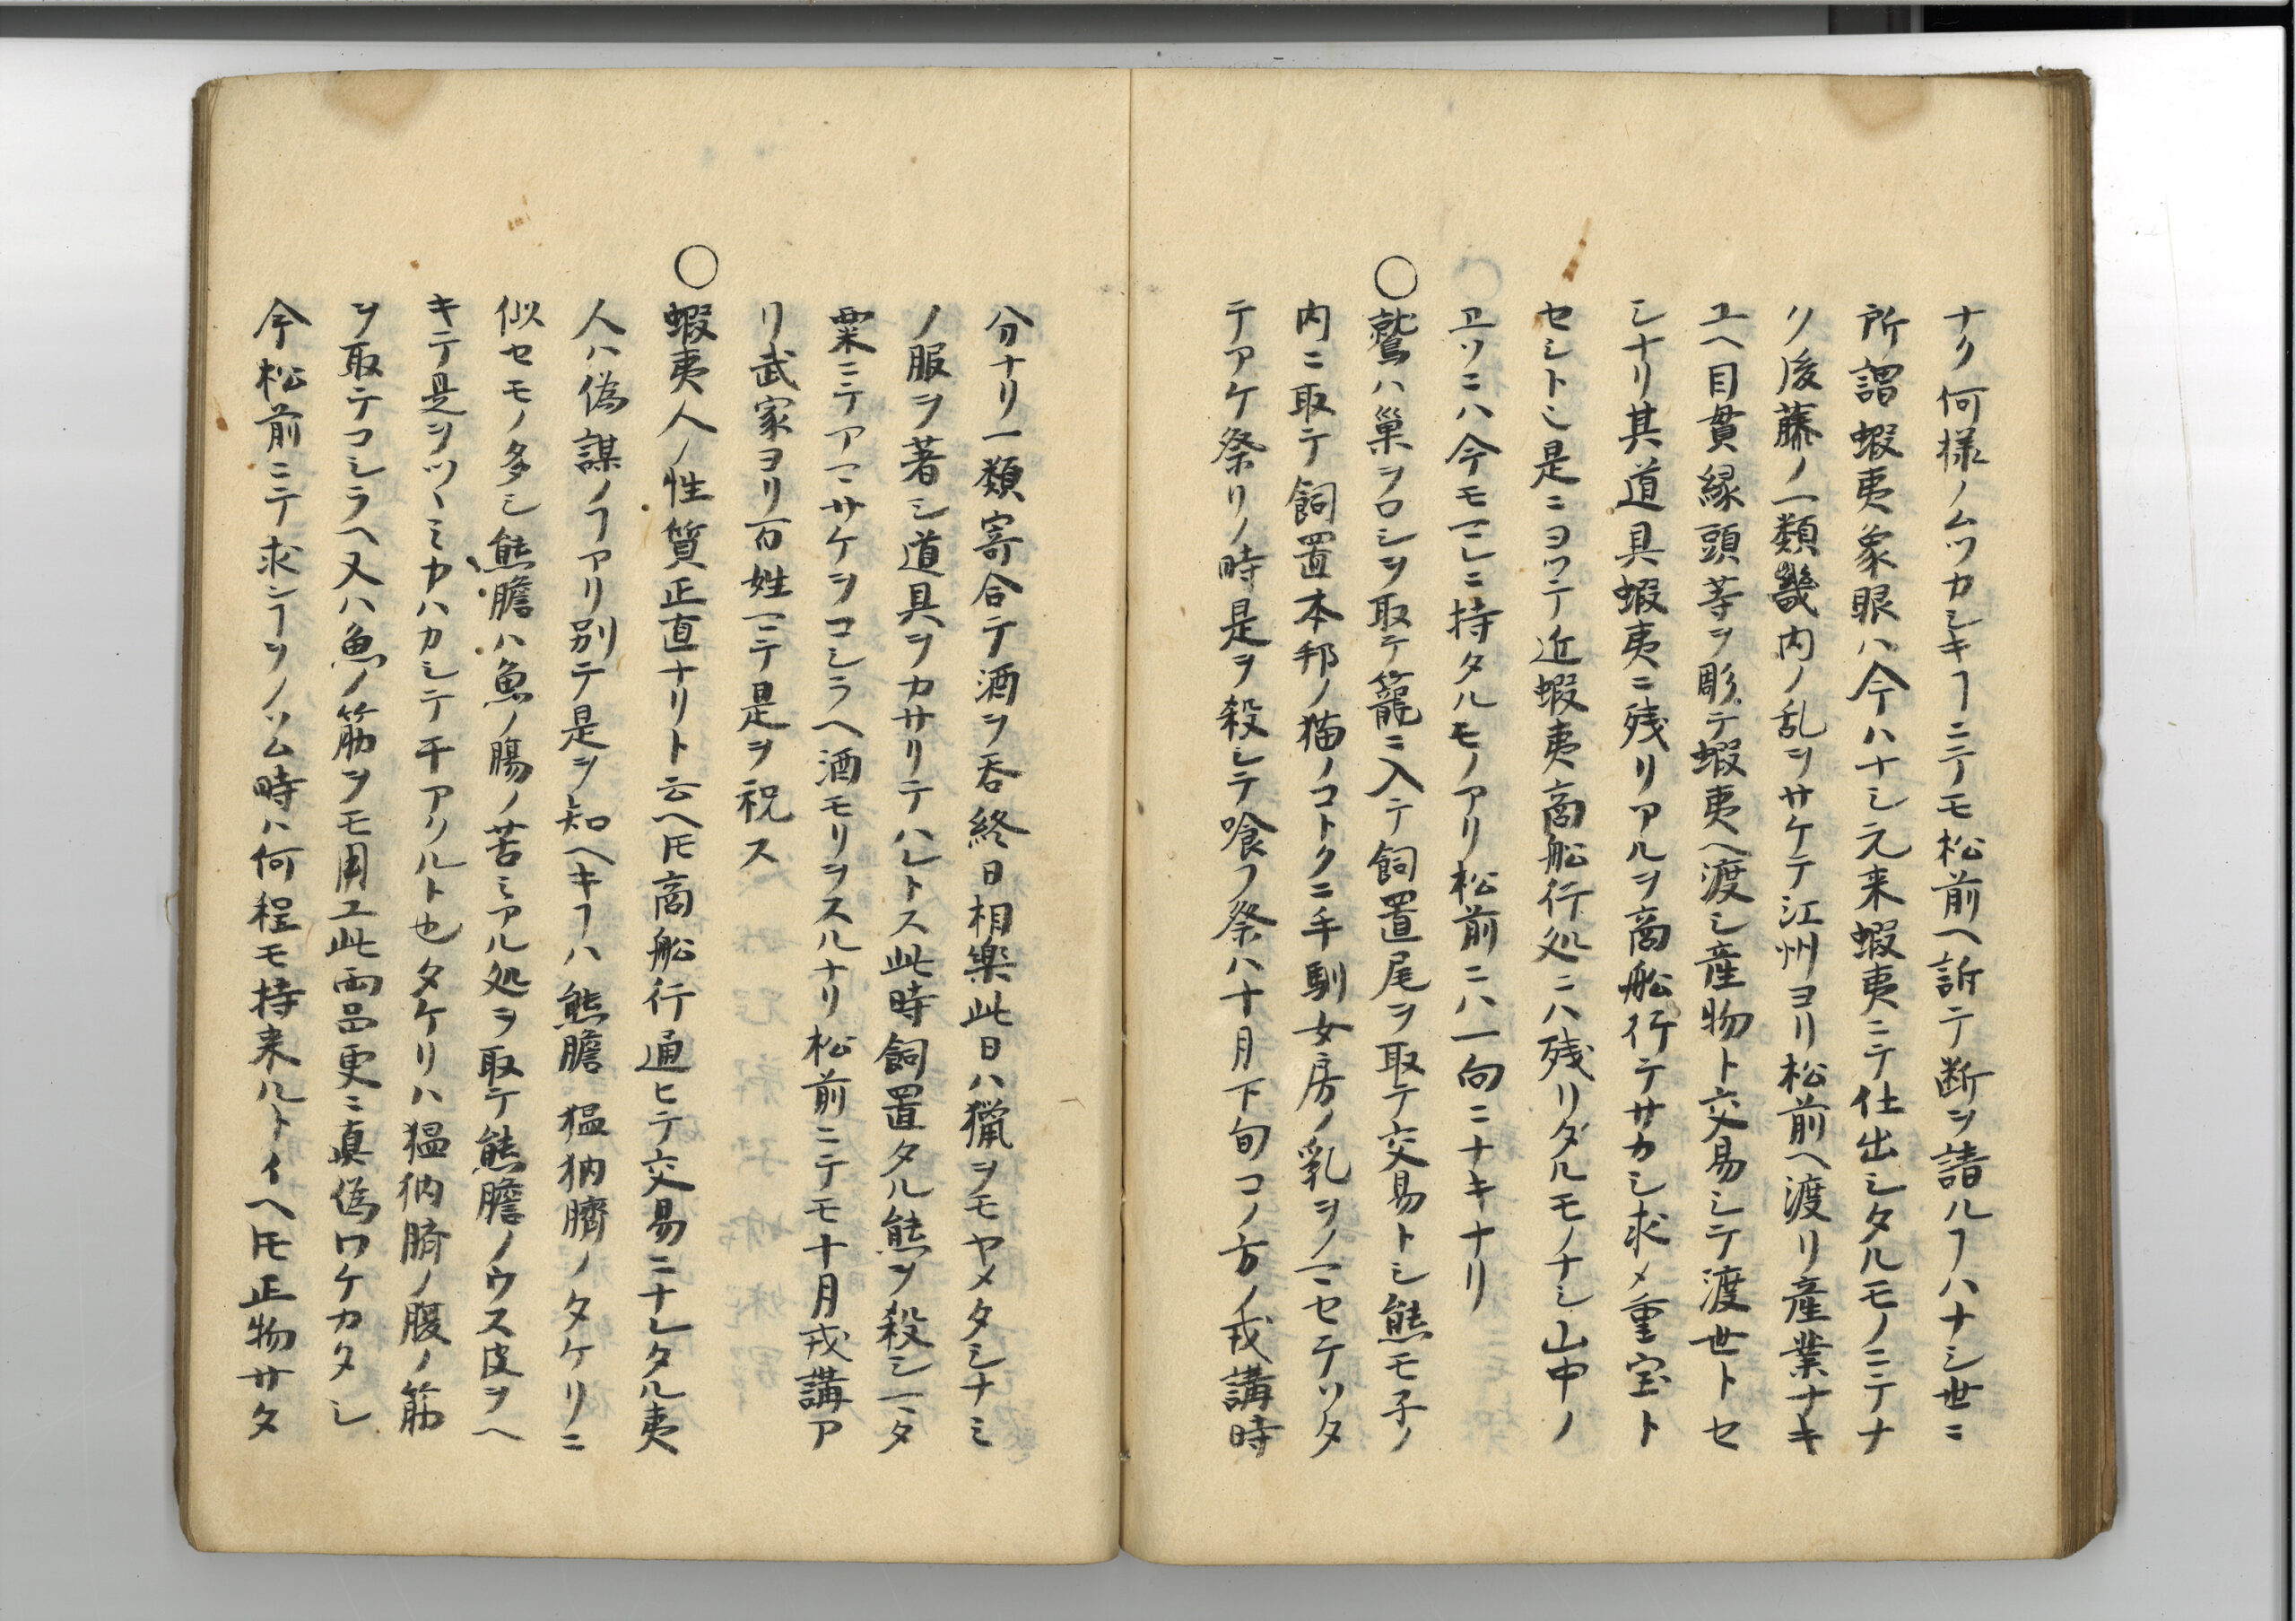 ナク何様ノムツカシキヿニテモ松前ヘ訴テ断ヲ請ルヿハナシ世ニ
所謂蝦夷象眼ハ今ハナシ元来蝦夷ニテ仕出シタルモノニテナ
ク後藤ノ一類畿内ノ乱ヲサケテ江州ヨリ松前ヘ渡リ産業ナキ
ユヘ目貫縁頭等ヲ彫テ蝦夷ヘ渡シ産物ト交易シテ渡世トセ
シナリ其道具蝦夷ニ残リアルヲ商舩行テサカシ求メ重宝ト
セシトシ是ニヨツテ近蝦夷商舩行処ニハ残リタルモノナシ山中ノ
ヱソニハ今モマレニ持タルモノアリ松前ニハ一向ニナキナリ
〇鷲ハ巣ヲロシヲ取テ籠ニ入テ飼置尾ヲ取テ交易トシ熊モ子ノ
内ニ取テ飼置本邦ノ猫ノコトクニ手馴女房ノ乳ヲノマセテソタ
テアケ祭リノ時是ヲ殺シテ喰フ祭ハ十月下旬コノ方ノ戎講時
分ナリ一類寄合テ酒ヲ呑終日相楽此日ハ猟ヲモヤメタシナミ
ノ服ヲ著シ道具ヲカサリテハレトス此時飼置タル熊ヲ殺シマタ
粟ニテアマサケヲコシラヘ酒モリヲスルナリ松前ニテモ十月戎講ア
リ武家ヨリ百姓マテ是ヲ祝ス
〇蝦夷人ノ性質正直ナリト云ヘ𪜈商舩行通ヒテ交易ニナレタル夷
人ハ偽謀ノヿアリ別テ是ヲ知ヘキヿハ熊膽猛狥臍ノタケリニ
似セモノ多シ熊膽ハ魚ノ腸ノ苦ミアル処ヲ取テ熊膽ノウス皮ヲヘ
キテ是ヲツヽミカハカシテ干アクルト也タケリハ猛狥臍ノ腹ノ筋
ヲ取テコシラヘ又ハ魚ノ筋ヲモ用ユ此両品更ニ真偽ワケカタシ
今松前ニテ求ンヿヲノソム時ハ何程モ持来ルトイヘ𪜈正物サタ